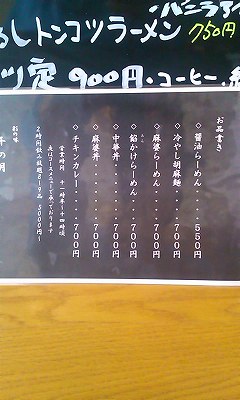 ・バニラア
らしトンコツラーメン 750円
ツ定 900円・コーヒー、
お品書き
◇醤油らーめん・・・・550円
◇冷やし胡麻麺・・・・700円
◇麻婆らーめん・・・・700円
◇餡かけらーめん・・・700円
◇中華丼・・・・・・・700円
◇麻婆丼・・・・・・・700円
◇チキンカレー・・・・700円
営業時間 十一時半〜十四時頃
夜はコースメニューで承っております
2時間飲み放題8〜9品 5000円〜
彩の味